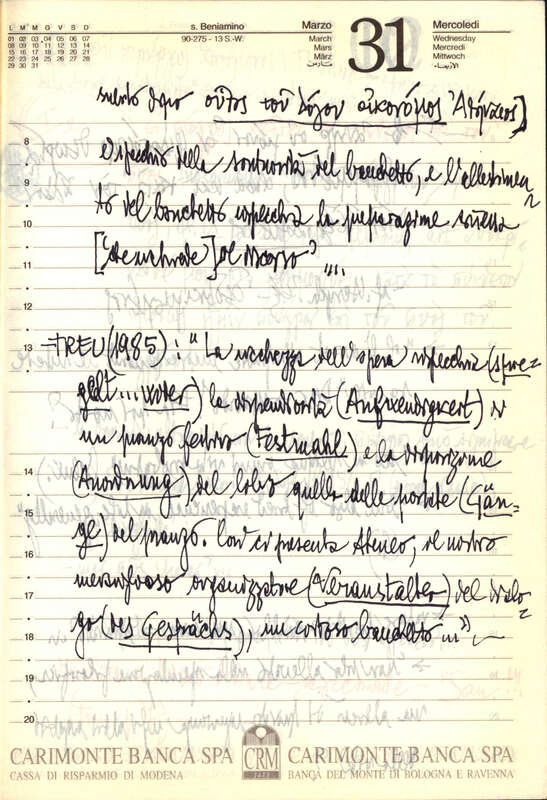 L M M G V S D
01 02 03 04 05 06 07
08 09 10 11 12 13 14
15 16 17 18 19 20 21
22 23 24 25 26 27 28
29 30 31
s. Beniamino
90-275 - 13 S.-W.
Marzo
March
Mars
März
مارس
31
Mercoledì
Wednesday
Mercredi
Mittwoch
الأربعاء
οὗτος τοῦ λόγου οἰκονόμος Ἀθήναιος]
8
specchio della sontuosità del banchetto, e l'allestimen-
9
to del banchetto rispecchia la preparazione stessa
10
del discorso"
11
12
13
TREU (1985): "La ricchezza dell'opera rispecchia (spie-
gelt... wider) la dispendiosità (Aufwendigkeit) di
un pranzo festivo (Festmahl) e la disposizione
14
(Anordnung) del lobos quella delle portate (Gän-
15
ge) del pranzo. Così ci presenta Ateneo, il nostro
16
meraviglioso organizzatore (Veranstalter) del dialo-
17
go (des Gesprächs), un banchetto ..."
18
19
20
CARIMONTE BANCA SPA
CASSA DI RISPARMIO DI MODENA
CRM
CARIMONTE BANCA SPA
BANCA DEL MONTE DI BOLOGNA E RAVENNA